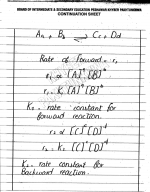 BOARD OF INTERMEDIATE & SECONDARY EDUCATION PESHAWAR KHYBER PAKHTUNKHWA
CONTINUATION SHEET
Aa + Bb ⇌ Cc + Dd
Rate of forward = r₁
r₁ ∝ [A]ᵃ [B]ᵇ
r₁ = K₁ [A]ᵃ [B]ᵇ
K₁ = rate constant for
forward reaction.
r₂ ∝ [C]ᶜ [D]ᵈ
r₂ = K₂ [C]ᶜ [D]ᵈ
K₂ = rate constant for
Backward reaction.